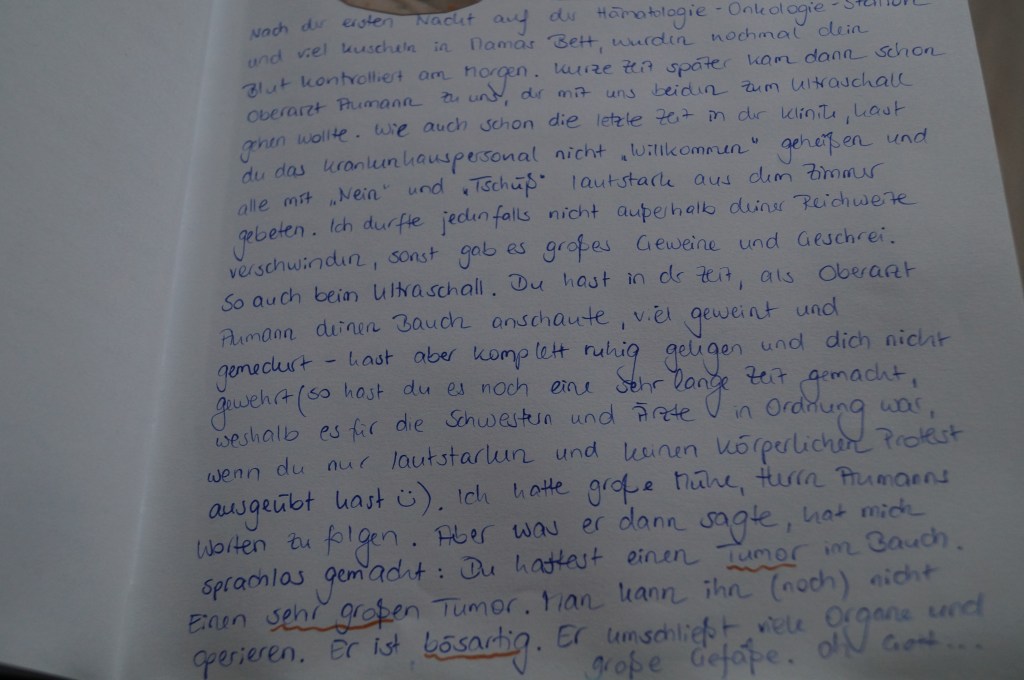 Nach der ersten Nacht auf der Hämatologie-Onkologie-Station
und viel kuscheln in Mamas Bett, wurden nochmal dein
Blut kontrolliert am Morgen. Kurze Zeit später kam dann schon
Oberarzt Aumann zu uns, der mit uns beiden zum Ultraschall
gehen wollte. Wie auch schon die letzte Zeit in der Klinik, hast
du das Krankenhauspersonal nicht „Willkommen" geheißen und
alle mit „Nein" und „Tschüß" lautstark aus dem Zimmer
gebeten. Ich durfte jedenfalls nicht außerhalb deiner Reichweite
verschwinden, sonst gab es großes Geweine und Geschrei.
So auch beim Ultraschall. Du hast in der Zeit, als Oberarzt
Aumann deinen Bauch anschaute, viel geweint und
gemeckert - hast aber komplett ruhig gelegen und dich nicht
gewehrt (so hast du es noch eine sehr lange Zeit gemacht,
weshalb es für die Schwestern und Ärzte in Ordnung war,
wenn du nur lautstarken und keinen körperlichen Protest
ausgeübt hast ☺). Ich hatte große Mühe, Herrn Aumanns
Worten zu folgen. Aber was er dann sagte, hat mich
sprachlos gemacht: Du hattest einen Tumor im Bauch.
Einen sehr großen Tumor. Man kann ihn (noch) nicht
operieren. Er ist bösartig. Er umschließt viele Organe und
große Gefäße. Oh Gott...